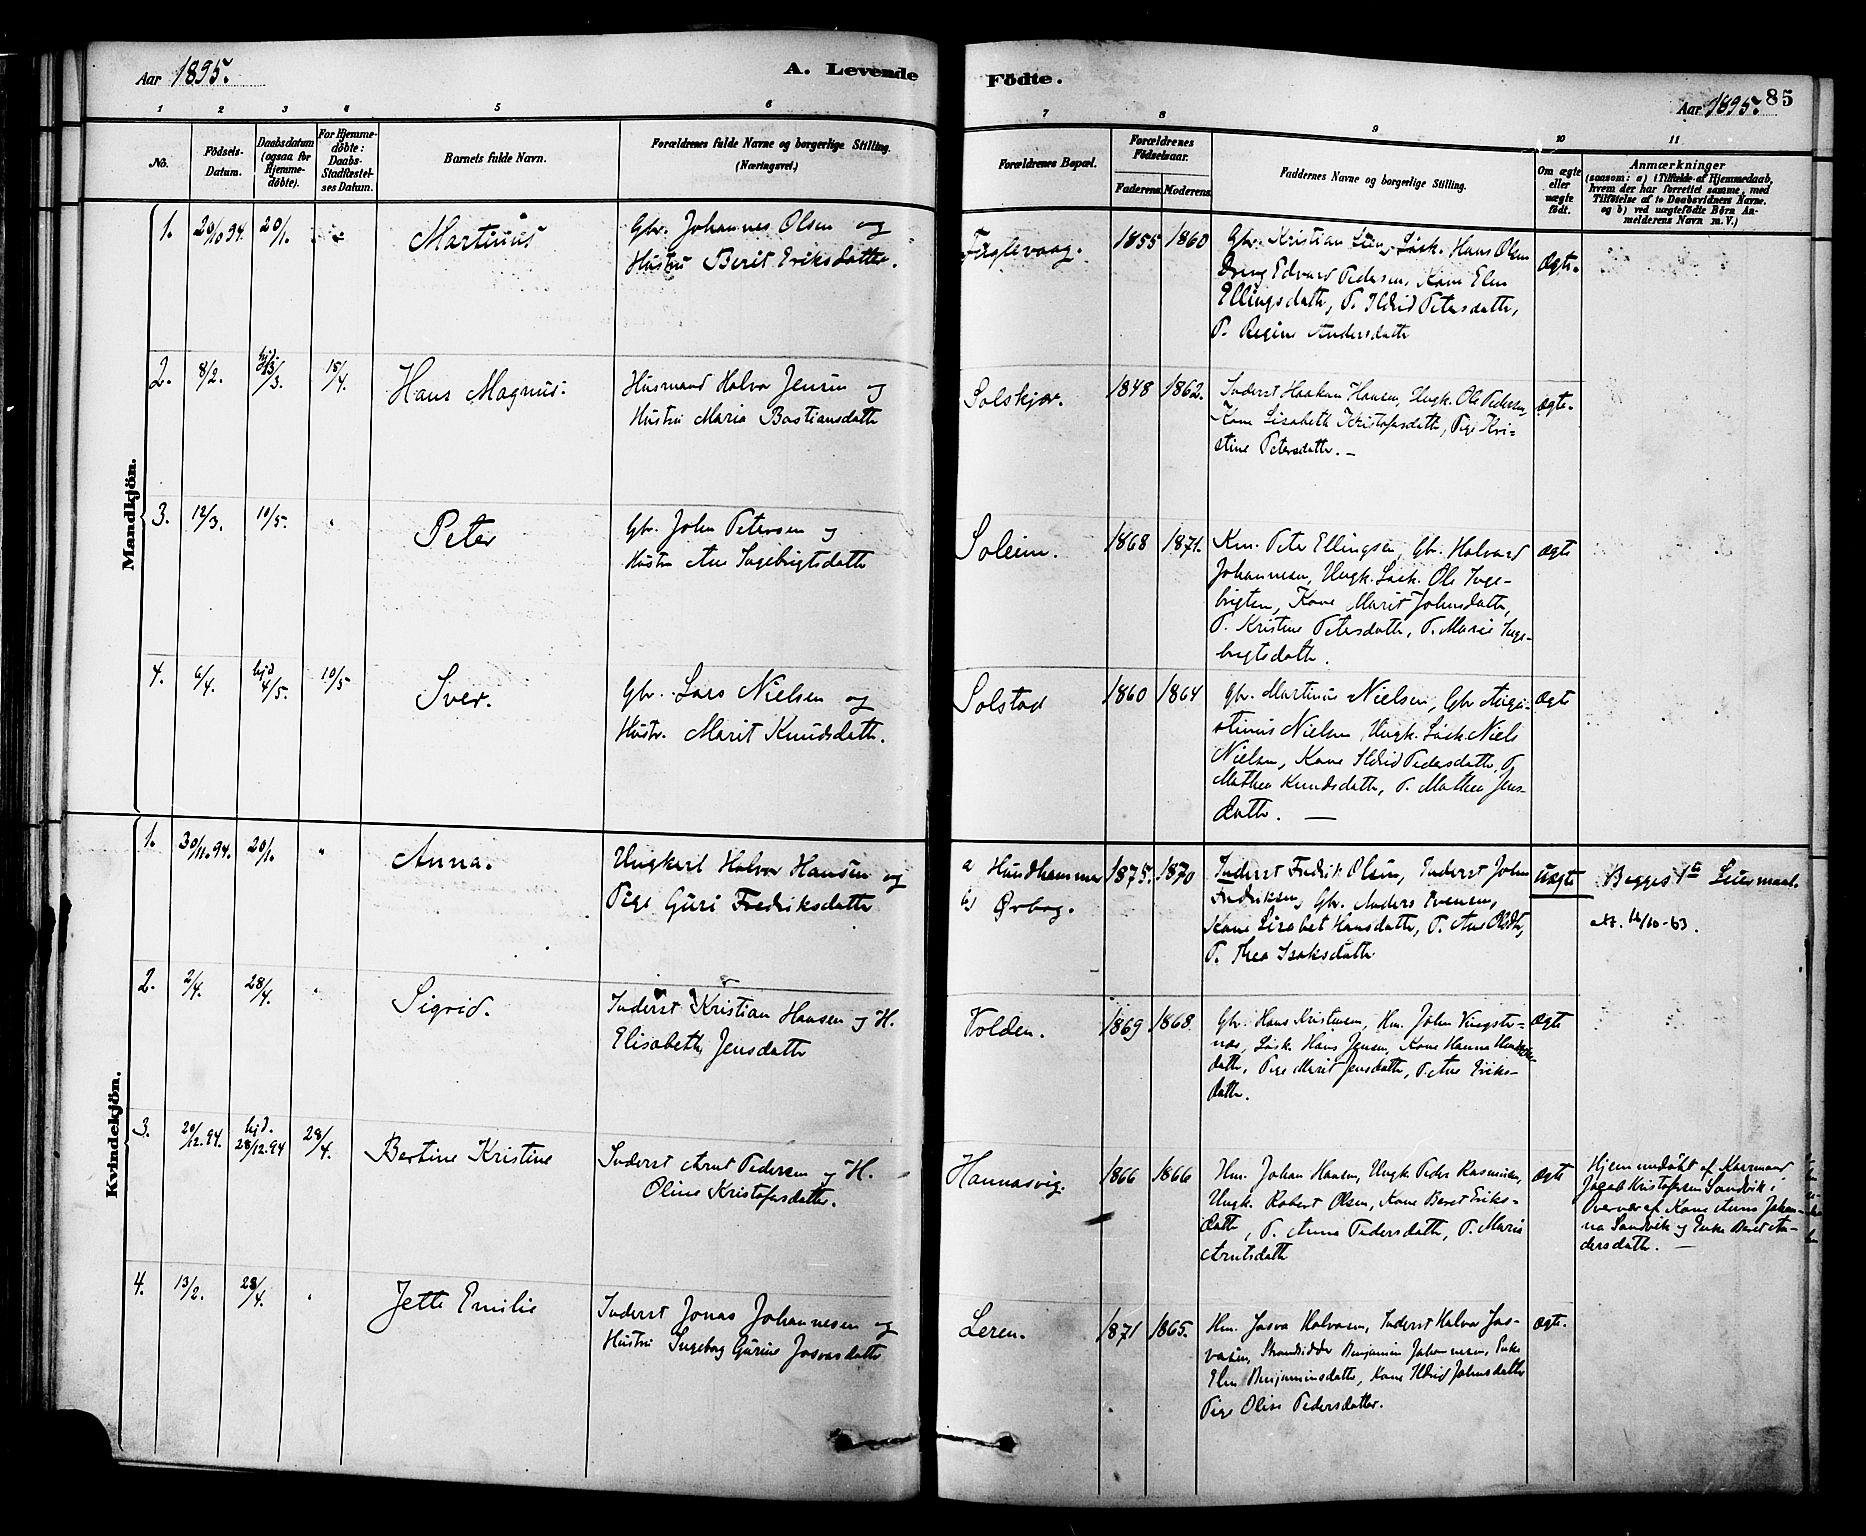 Aar 1895.
A. Levende
Födte.
Aar 1895.
85
1 2 3 4 5 6 7 8 9 10 11
No.
Födsels-
Datum.
Daabsdatum
(ogsaa for
Hjemme-
döbte).
For Hjemme-
döbte:
Daabs-
Stadfæstel-
ses Datum.
Barnets fulde Navn.
Forældrenes fulde Navne og borgerlige Stilling.
(Næringsvei.)
Forældrenes Bopæl.
Forældrenes
Födselsaar.
Faderens. Moderens.
Faddernes Navne og borgerlige Stilling.
Om ægte
eller
uægte
födt.
Anmærkninger
(saasom: a) i Tilfælde af Hjemmedaab,
hvem der har forrettet samme, med
Tilföielse af to Daabsvidners Navne.
og b) ved uægtefödte Börn An-
melderens Navn m. V.)
Mandkjön.
1.
20/10 94.
20/1.
Martinus
Gbr. Johannes Olsen og
Hustru Berit Eriksdatter.
Fuglevaag.
1855 1860
Gbr. Kristian Lien, Løsk. Hans Olsen
Dreng Edvard Pedersen, Kone Elen
Ellingsdatter, P. Ildrid Petersdatter,
P. Regine Andersdatter
Ægte.
2.
8/2.
hjd.
13/3.
15/4.
Hans Magnus.
Husmand Halvor Jensen og
Hustru Maria Bastiansdatter
Solskjær.
1848 1862.
Inderst Haakon Hansen, Ungk. Ole Pedersen,
Kone Lisabeth Kristofersdatter, Pige Kri-
stine Petersdatter. —
Ægte.
3.
12/3.
10/5.
Peter
Gbr. John Petersen og
Hustru Ane Ingebrigtsdatter
Soleim.
1868 1871.
Km. Peter Ellingsen, Gbr. Halvard
Johannesen, Ungk. Løsk. Ole Inge-
brigtsen, Kone Marit Johnsdatter,
P. Kristine Petersdatter, P. Marie Inge-
brigtsdatter.
Ægte
4.
6/4.
hjd
4/5.
10/5
Iver.
Gbr. Lars Nielsen og
Hustr. Marit Knudsdatter.
Solstad
1860 1864
Gbr. Martinus Nielsen, Gbr Augu-
stinus Nielsen, Ungk. Løsk. Niels
Nielsen, Kone Ildrid Pedersdatter, P.
Mathea Knudsdatter, P. Mathea Jens-
datter. —
Ægte
Kvindekjön.
1.
30/11.94.
20/1.
"
Anna.
Ungkarl Halvor Hansen og
Pige Guri Fredriksdatter
a Hundhammer
b) Ørbog.
1875. 1870
Inderst Fredrik Olsen, Inderst John
Fredriksen, Gbr. Anders Evensen,
Kone Lisabet Hansdatter, P. Ane Olsdtr,
P. Thea Isaksdatter
Uægte
Begges 1ste Leiermaal.
Att. 14/10-63.
2.
2/4.
28/4.
Sigrid.
Inderst Kristian Hansen og H.
Elisabeth Jensdatter
Volden.
1869 1868.
Gbr. Hans Kristensen, Hm. John Vingster-
nes, Løsk. Hans Jensen, Kone Hanna Henriks-
datter, Pige Marit Jensdatter, P. Ane Eriks-
datter.
Ægte
3.
20/12.94.
hjd.
28/12.94
28/4.
Bertine Kristine
Inderst Arnt Pedersen og H.
Oline Kristofersdatter.
Hannasvig.
1866 1866
Hm. Johan Hansen, Ungk. Peder Rasmusen,
Ungk. Robert Olsen, Kone Beret Eriks-
datter, P. Anna Pedersdatter, P. Marie
Arntsdatter
Ægte
Hjemmedøbt af Kaarmand
Jacob Kristofersen Sandvik i
Overvær af Kone Anna Johan-
na Sandvik og Enke Beret An-
dersdatter. —
4.
13/2.
28/4.
Jette Emilie
Inderst Jonas Johannesen og
Hustru Ingeborg Gurine Josvasdatter
Leren.
1871 1865.
Hm. Josva Halvorsen, Inderst Halvor Jos-
vasen, Strandsidder Benjamin Johannesen, Enke
Elen Benjaminsdatter, Kone Ildrid Johnsdatter
Pige Olise Pedersdatter.
Ægte.